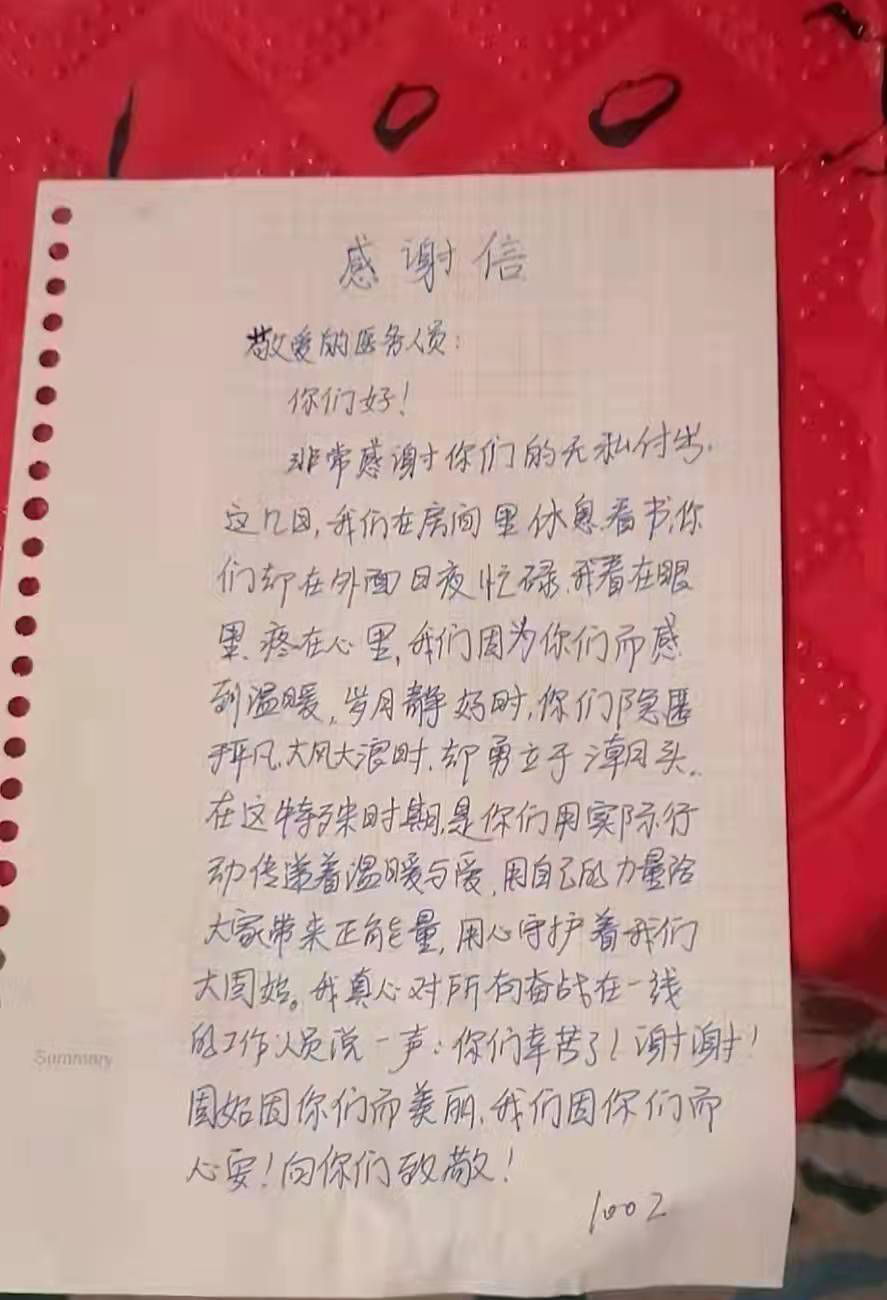 100
感谢信
敬爱的医务人员：
你们好！
非常感谢你们的无私付出.
这几日,我们在房间里休息.看书,你
们却在外面日夜忙碌.我看在眼
里.疼在心里,我们因为你们而感
到温暖.岁月静好时,你们隐匿
平凡.大风大浪时.却勇立于潮头.
在这特殊时期,是你们用实际行
动传递着温暖与爱,用自己的力量给
大家带来正能量,用心守护着我们
大固始。我真心对所有奋战在一线
的工作人员说一声：你们幸苦了！谢谢！
固始因你们而美丽.我们因你们而
心安！向你们致敬！
1002
Summary